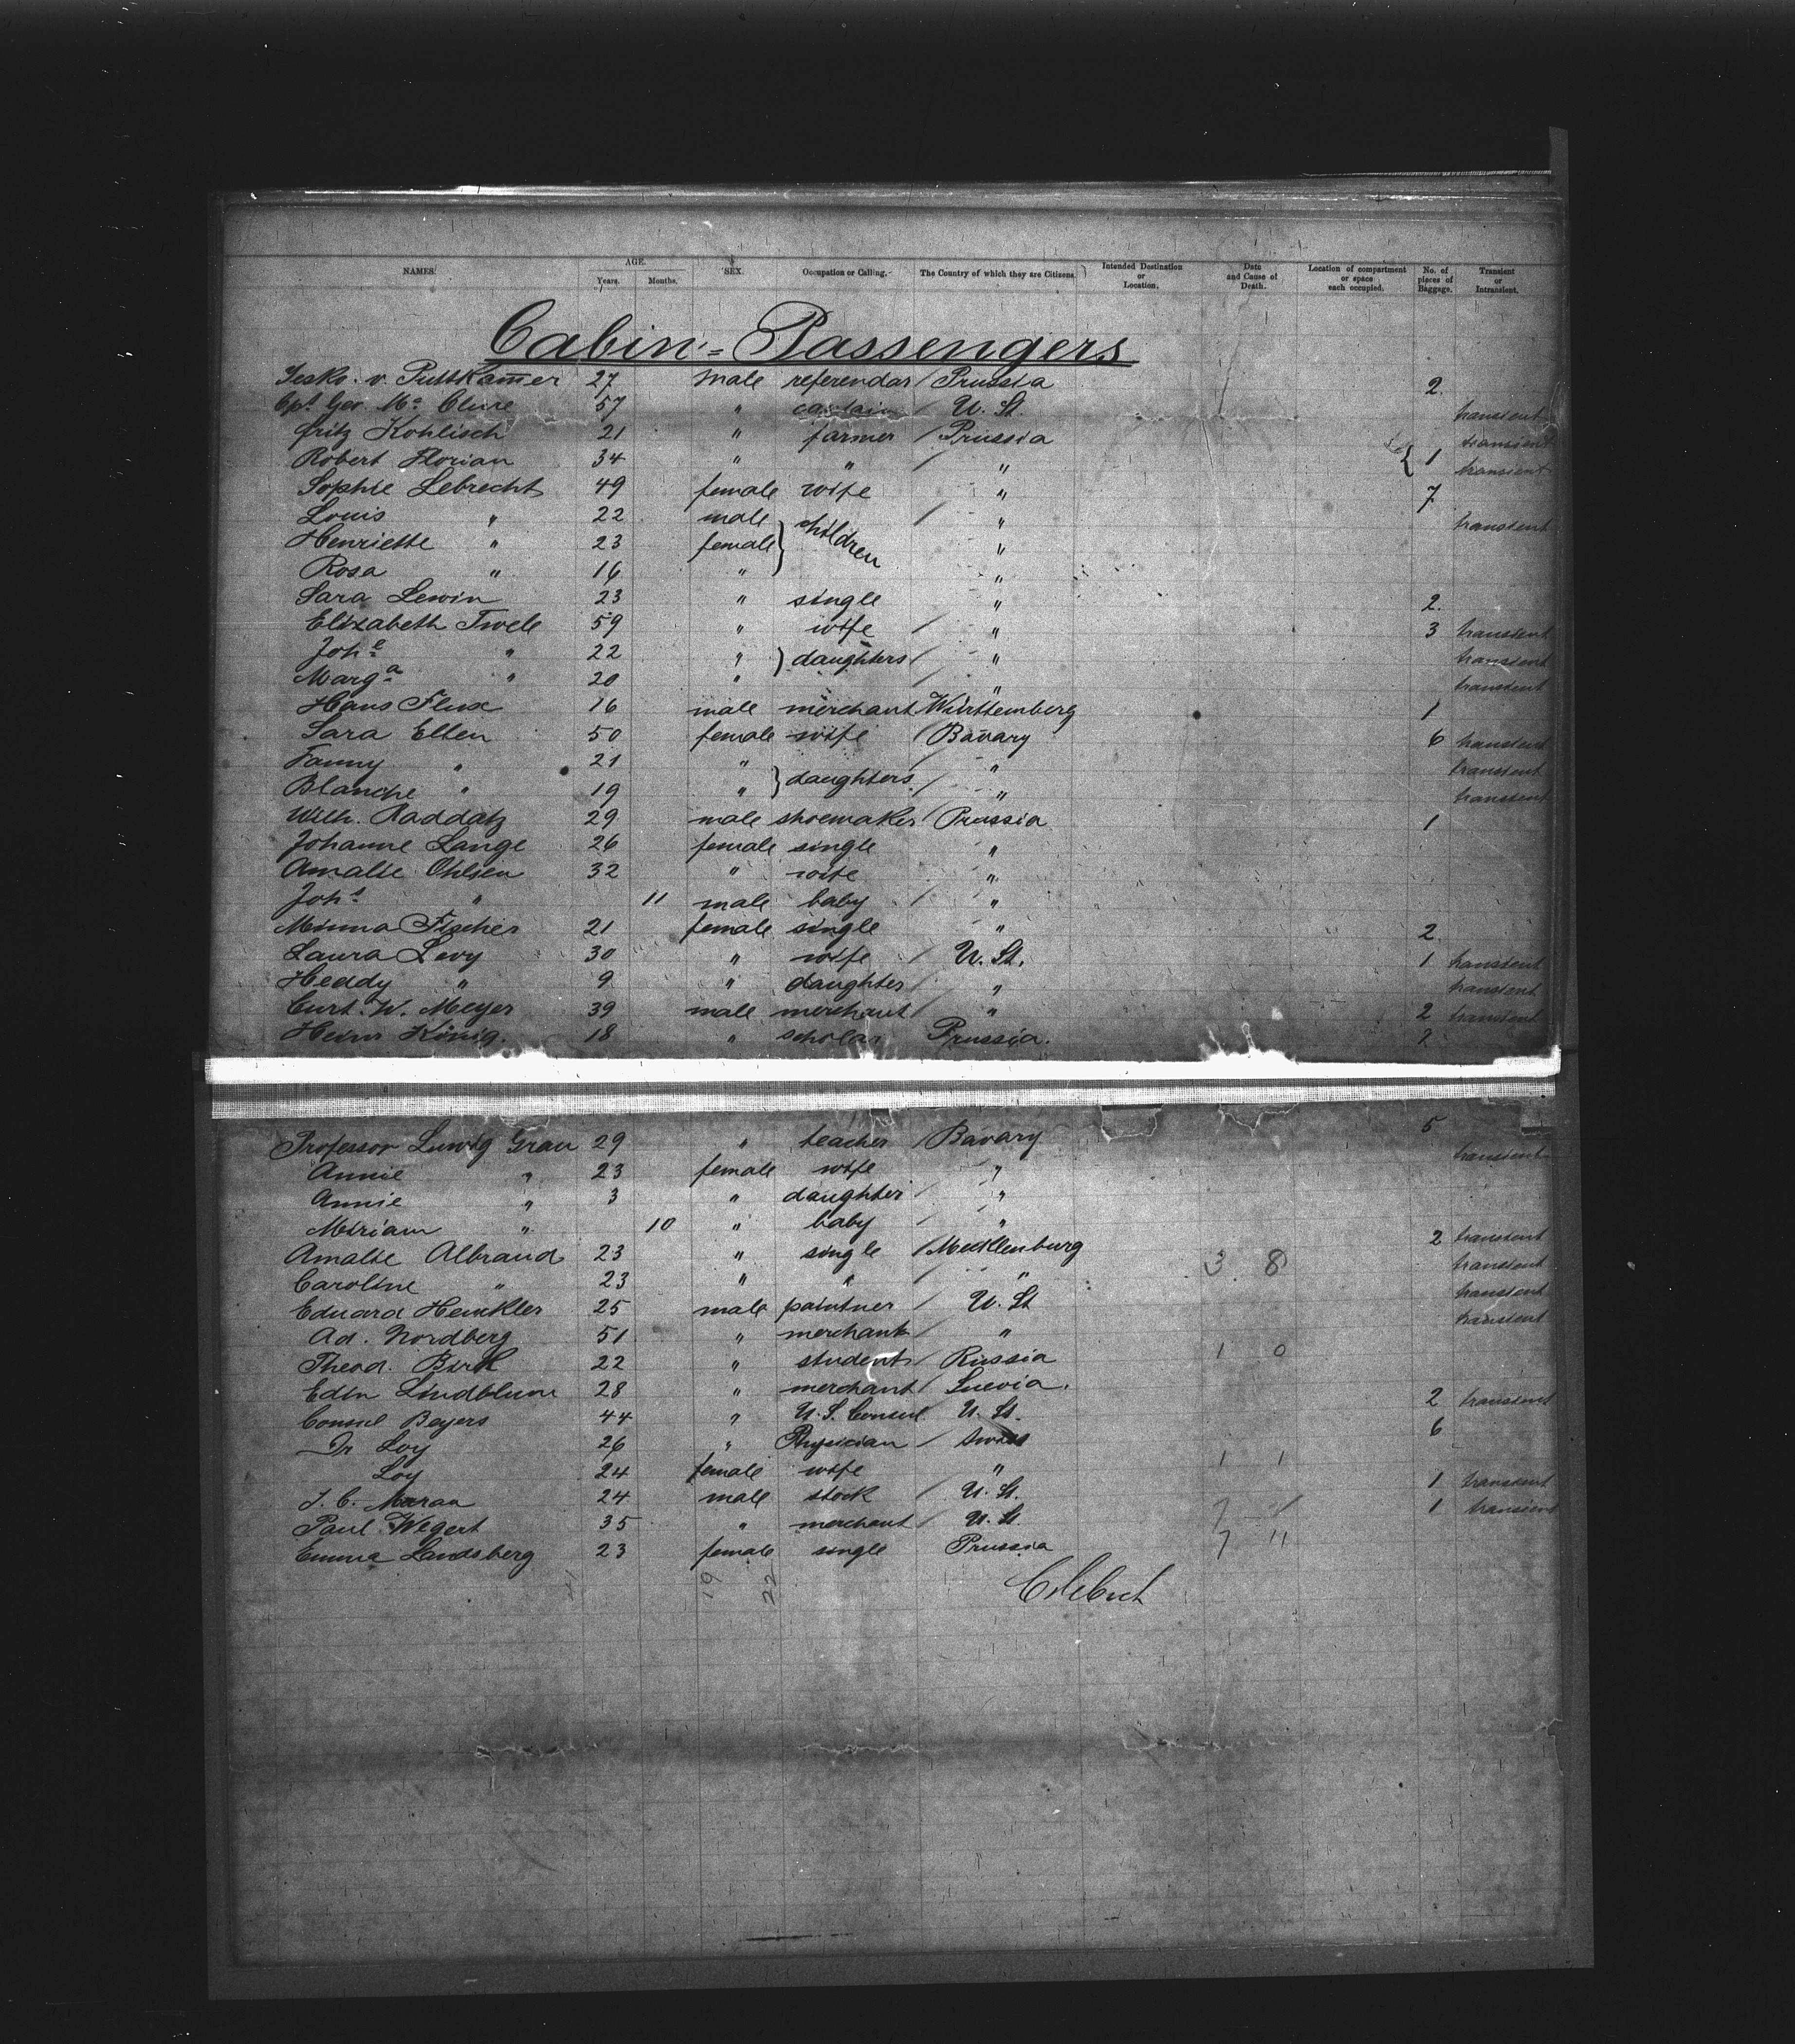 NAMES. AGE. Years. Months. SEX. Occupation or Calling. The Country of which they are Citizens. Intended Destination or Location. Date and Cause of Death. Location of compartment or space each occupied. No. of pieces of Baggage. Transient or Intransient.
Cabin-Passengers
Jesko. v. Puttkamer 27 male referendar Prussia 2.
Cpt. Geo. Mc Clure 57 " captain U. St. transient
Fritz Kohlisch 21 " farmer Prussia transient
Robert Florian 34 " " " 1 transient
Sophie Lebrecht 49 female wife " 7
Louis " 22 male children " transient
Henriette " 23 female "
Rosa " 16 " "
Sara Lewin 23 " single " 2.
Elizabeth Twele 59 " wife " 3 transient
Johe " 22 " daughters " transient
Marga " 20 " " transient
Hans Flux 16 male merchant Württemberg 1
Sara Ellen 50 female wife Bavary 6 transient
Fanny " 21 " daughters " transient
Blanche " 19 " " transient
Wilh. Raddatz 29 male shoemaker Prussia 1
Johanne Lange 26 female single "
Amalie Ohlsen 32 " wife "
Johs " 11 male baby "
Minna Fischer 21 female single " 2
Laura Levy 30 " wife U. St. 1 transient
Heddy " 9 " daughter " transient
Curt. W. Meyer 39 male merchant " 2 transient
Heinr König. 18 " scholar Prussia. 2
Professor Luwig Grau 29 " teacher Bavary 5 transient
Annie " 23 female wife "
Annie " 3 " daughter "
Miriam " 10 " baby "
Amalie Albrand 23 " single Mecklenburg 3 8 2 transient
Caroline " 23 " " " transient
Eduard Henkler 25 male paintner U. St transient
Ad. Nordberg 51 " merchant " transient
Theod. Birk 22 " student Russia 1 0
Edin Lindblum 28 " merchant Suevia. 2 transient
Consul Beyers 44 " U. S. Consul U. St. 6
Dr Loy 26 " Physician Swiss
Loy 24 female wife " 1 1
J. C. Maraa 24 male stock U. St. 1 transient
Paul Wegert 35 " merchant U. St. 1 transient
Emma Landsberg 23 female single Prussia 7 11
19 22